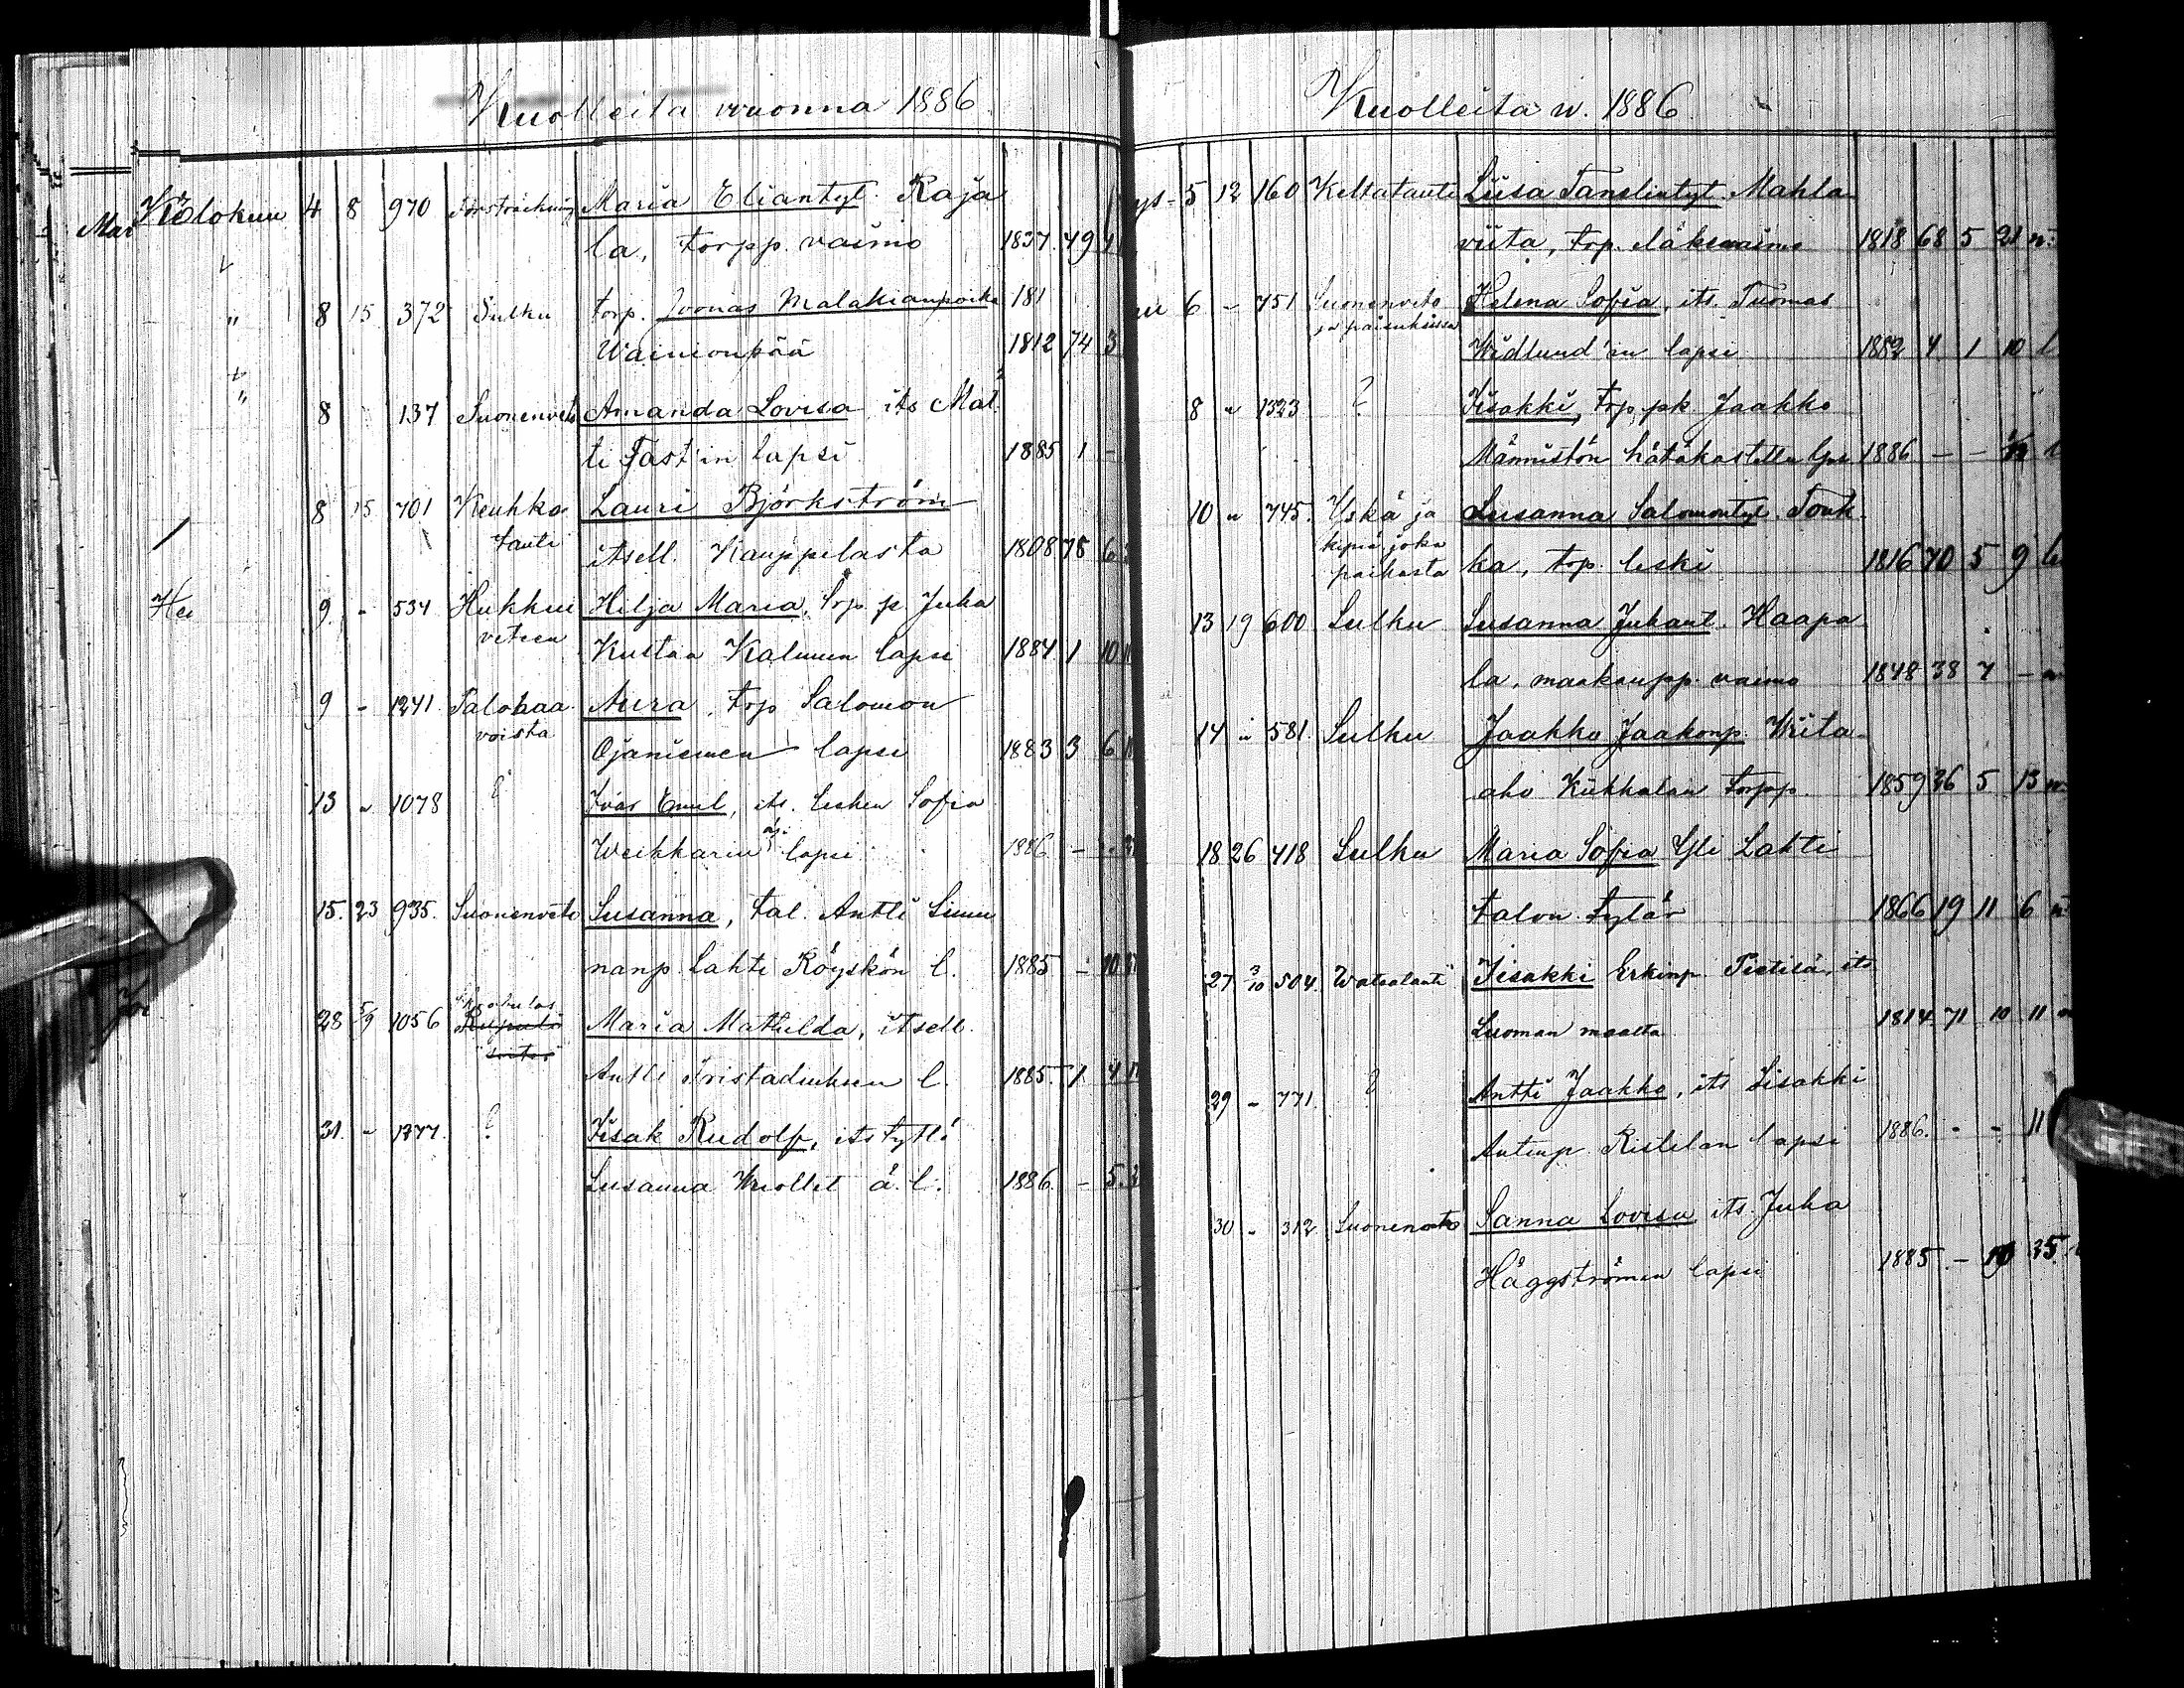 Kuolleita vuonna 1886
Elokuu 4 8 970 Försträckning Maria Eliantyt. Raja
la, torpp. vaimo 1837 49
" 8 15 372 Sulku torp. Joonas Malakianpoika 181
Wainionpää 1812 74 3
" 8 137 Suonenveto Amanda Lovisa its Mat
ti Fast'in lapsi 1885 1 -
8 15 701 Keuhko Lauri Björkström
tauti itsell. Kauppilasta 1808 78 6
9 - 534 Hukkui Hilja Maria, trp. p. Juha
veteen Kustaa Kalmun lapsi 1884 1 10
9 - 1241 Palohaa Aura, trp Salomon
voista Ojaniemen lapsi 1883 3 6
13 " 1078 ? Ivar Emil, its. lesken Sofia
Weikkarin äp. lapsi 1886 -
15. 23 935. Suonenveto Susanna, tal. Antti Simu
nanp. Lahti Röyskön l. 1885 - 10
28 5/9 1056 Maria Mathilda, itsell.
Antti l. 1885. 1 4
31. " 1377. ? Iisak Rudolf, its tytt.
Susanna Wuollet ä. l. 1886. - 5.
Kuolleita w. 1886
5 12 160 Keltatauti Liisa Tanelintyt. Mahla
viita, trp. eläkevaimo 1818 68 5 21
6 - 751 Suonenveto Helena Sofia, its. Tuomas
ja paisuksissa Widlund'in lapsi 1882 4 1 10 l
8 " 1323 ? Iisakki, trp. pk. Jaakko
Männistön hätäkastettu 1886 - -
10 " 745. Yskä ja Susanna Salomontyt. Touk
kipiä joka
paikasta ka, trp. leski 1816 70 5 9 le
13 19 600 Sulku Susanna Juhant. Haapa
la, maakaupp. vaimo 1848 38 7 -
14 " 581 Sulku Jaakko Jaakonp. Wiita
aho Kiikkalan torpp. 1859 26 5 13
18 26 418 Sulku Maria Sofia Yli Lahti
talon tytär 1866 19 11 6
27 3/10 504. Watsatauti Iisakki Erkinp. Pietilä, its
Luoman maalta 1814 71 10 11
29 - 771. ? Antti Jaakko, its Iisakki
Antinp. Ristilan lapsi 1886. - - 11
30 - 312 Suonenveto Sanna Lovisa its. Juha
Häggströmin lapsi 1885 - 25.